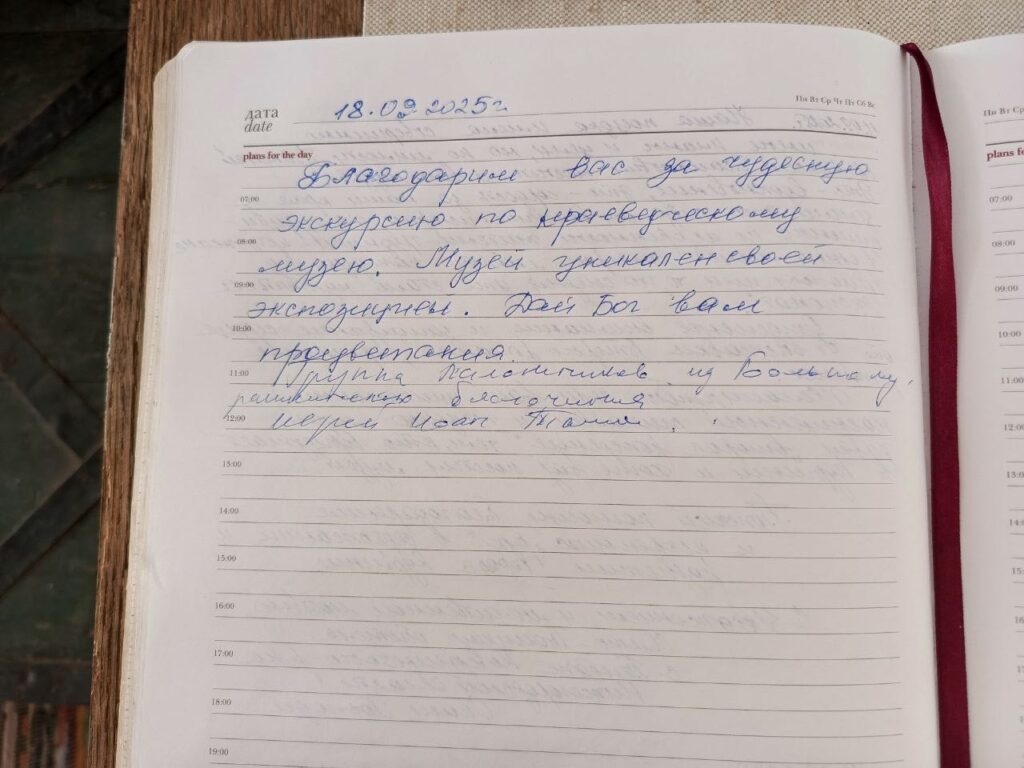 дата
date
18.09.2025г
Пн Вт Ср Чт Пт Сб Вс
plans for the day
Благодарим вас за чудесную
07:00
экскурсию по краеведческому
08:00
музею. Музей уникален своей
09:00
экспозицией. Дай Бог вам
10:00
процветания.
11:00
Группа паломников из Больше
благочиния
12:00
иерей Иоан
13:00
14:00
15:00
16:00
17:00
18:00
19:00
Пн Вт Ср
plans fo
07:00
08:00
09:00
10:00
11:00
12:0
13:0
14:
15:
16
17
18